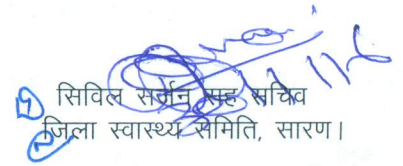 सिविल सर्जन सह सचिव
जिला स्वास्थ्य समिति, सारण।